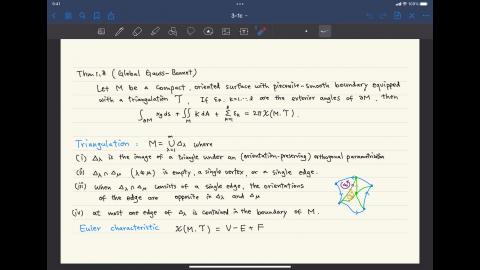 9:41
3-1c
Thm 1.8 (Global Gauss-Bonnet)
Let M be a compact, oriented surface with piecewise-smooth boundary equipped
with a triangulation T. If εk, k=1,… ℓ are the exterior angles of ∂M, then
∫∂M κg ds + ∬M K dA + Σ k=1 ℓ εk = 2π χ(M,T).
Triangulation : M = ∪ λ=1 m Δλ where
(i) Δλ is the image of a triangle under an (orientation-preserving) orthogonal parametrisation
(ii) Δλ ∩ Δμ (λ≠μ) is empty, a single vertex, or a single edge.
(iii) When Δλ ∩ Δμ consists of a single edge, the orientations
of the edge are opposite in Δλ and Δμ
(iv) at most one edge of Δλ is contained in the boundary of M.
Euler characteristic χ(M,T) = V-E+F